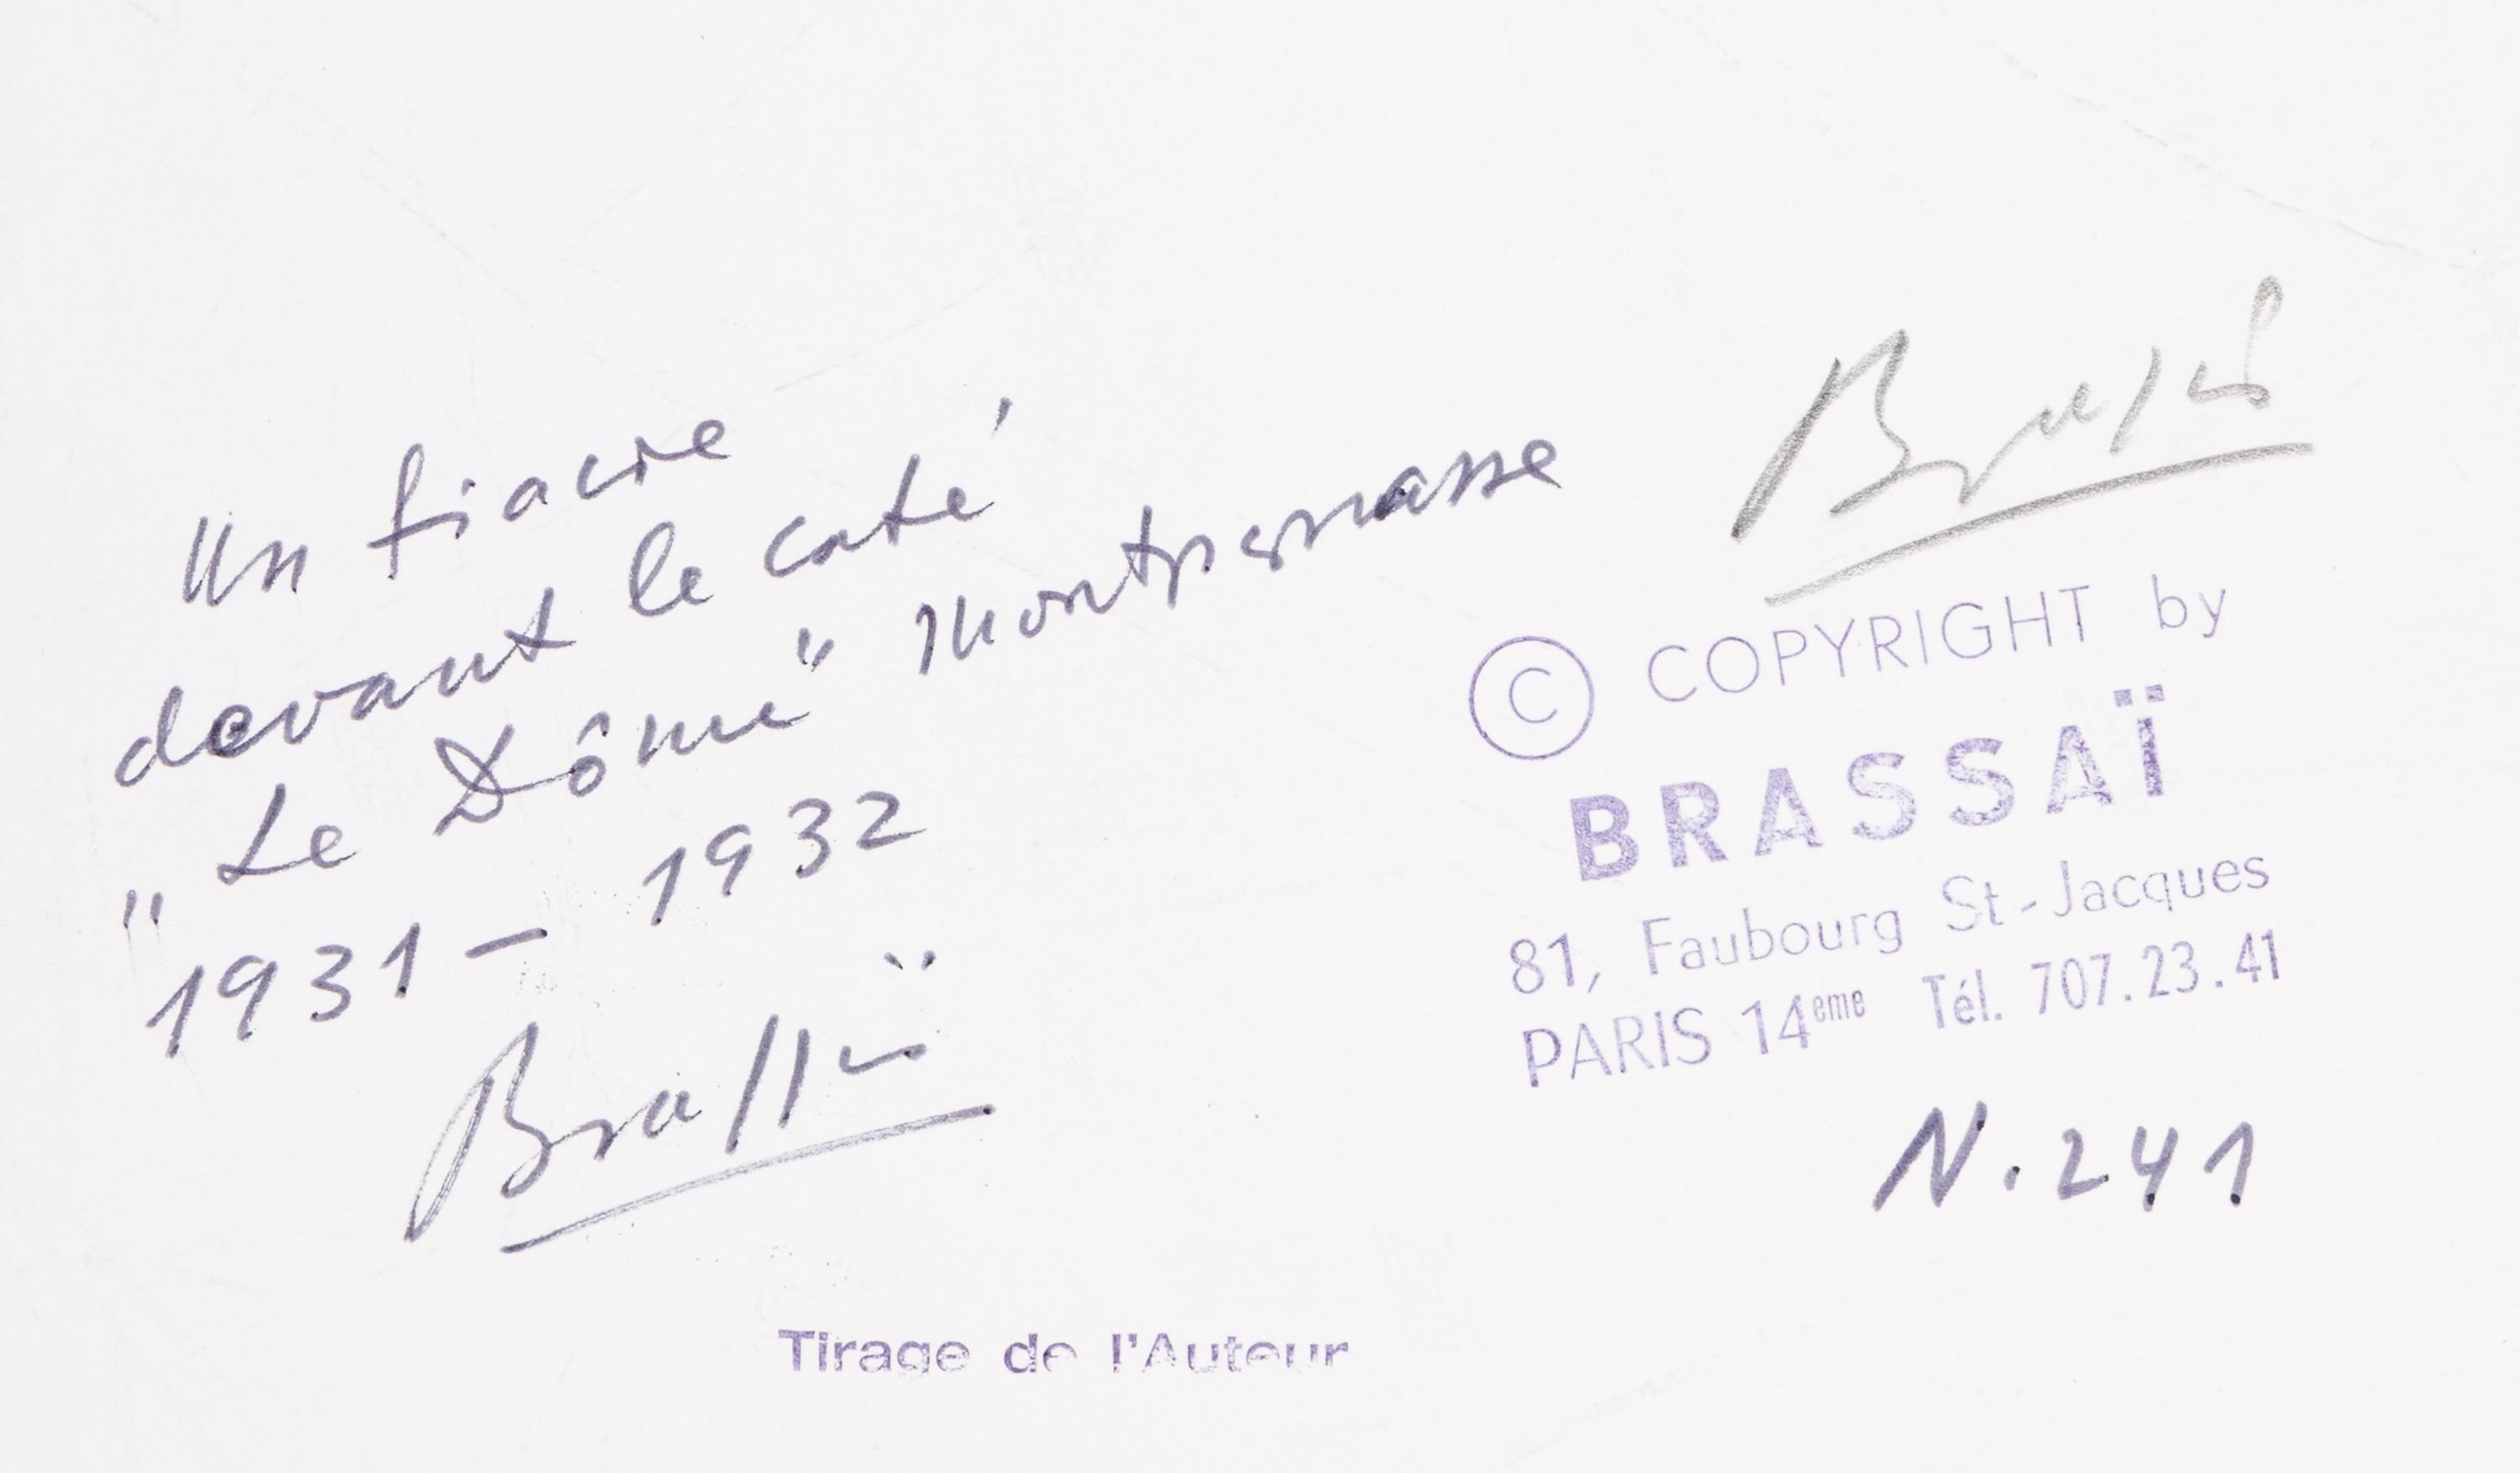 Un fiacre
devant le café
"Le Dôme" Montparnasse
1931 – 1932
Brassaï
Brassaï
© COPYRIGHT by
BRASSAÏ
81, Faubourg St-Jacques
PARIS 14eme Tél. 707.23.41
N. 241
Tirage de l'Auteur